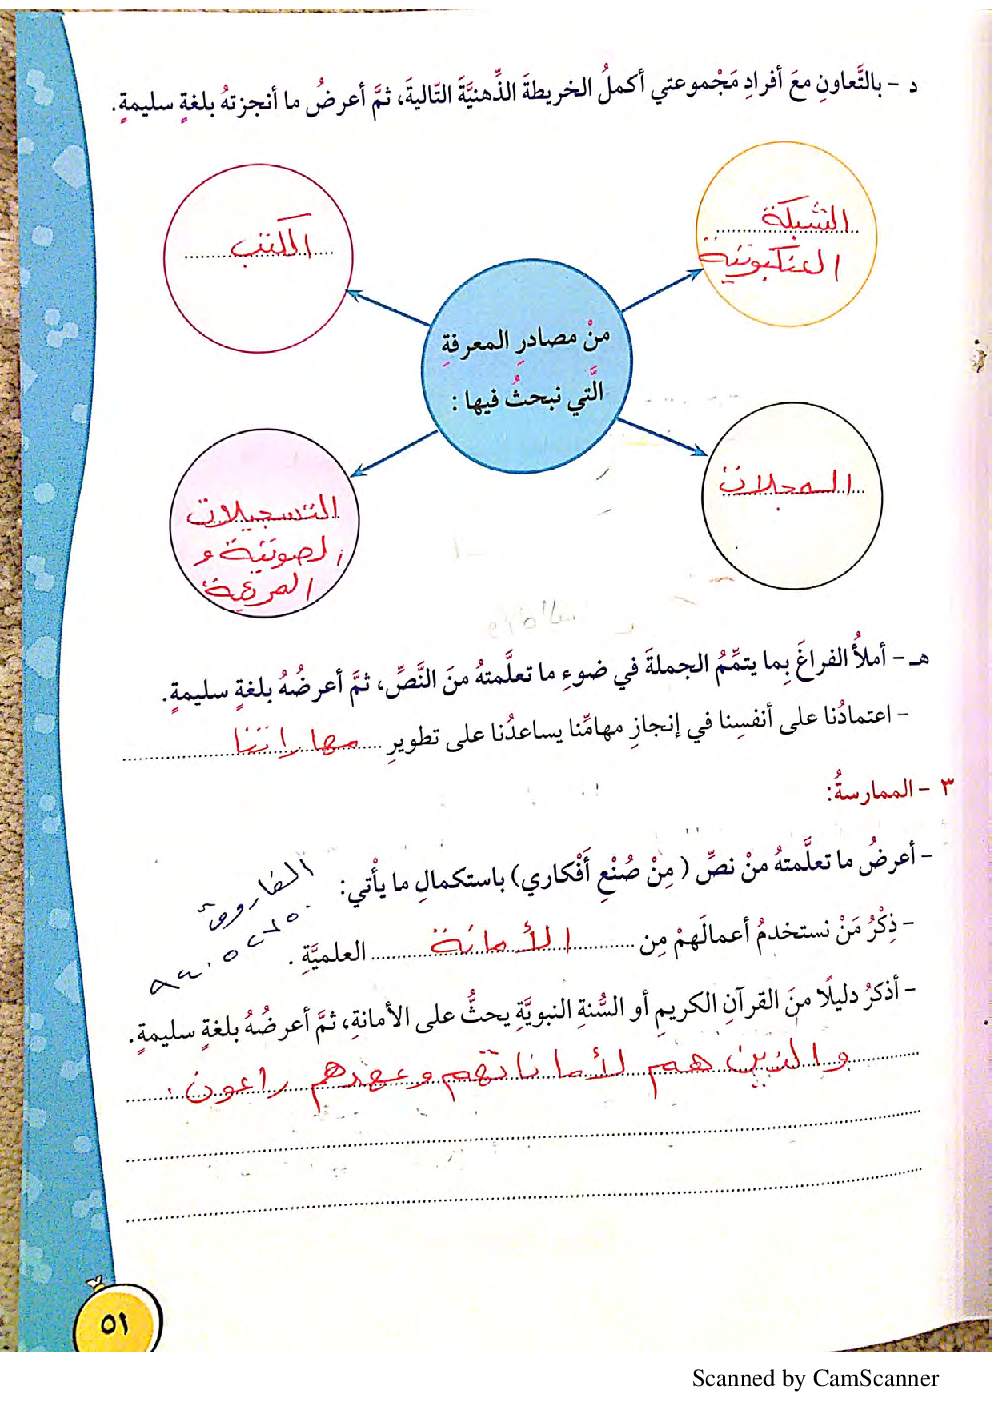 د - بالتَّعاونِ معَ أفرادِ مَجْموعتي أكملُ الخريطةَ الذِّهنيَّةَ التّاليةَ، ثمَّ أعرضُ ما أنجزتهُ بلغةٍ سليمةٍ.
الشبكة
العنكبوتية
الكتب
منْ مصادرِ المعرفةِ
الَّتي نبحثُ فيها :
المجلات
التسجيلات
الصوتية و
المرئية
هـ - أملأُ الفراغَ بِما يتمِّمُ الجملةَ في ضوءِ ما تعلَّمتهُ منَ النَّصِّ، ثمَّ أعرضُهُ بلغةٍ سليمةٍ.
- اعتمادُنا على أنفسِنا في إنجازِ مهامِّنا يساعدُنا على تطويرِ مهاراتنا
٣ - الممارسةُ:
- أعرضُ ما تعلَّمتهُ منْ نصِّ ( مِنْ صُنْعِ أَفْكاري) باستكمالِ ما يأْتي:
الفاروق
- ذِكْرُ مَنْ نستخدمُ أعمالَهمْ مِن الأمانة العلميَّةِ .
- أذكرُ دليلًا منَ القرآنِ الكريمِ أو السُّنةِ النبويَّةِ يحثُّ على الأمانةِ، ثمَّ أعرضُهُ بلغةٍ سليمةٍ.
والذين هم لأماناتهم وعهدهم راعون .
٥١
Scanned by CamScanner